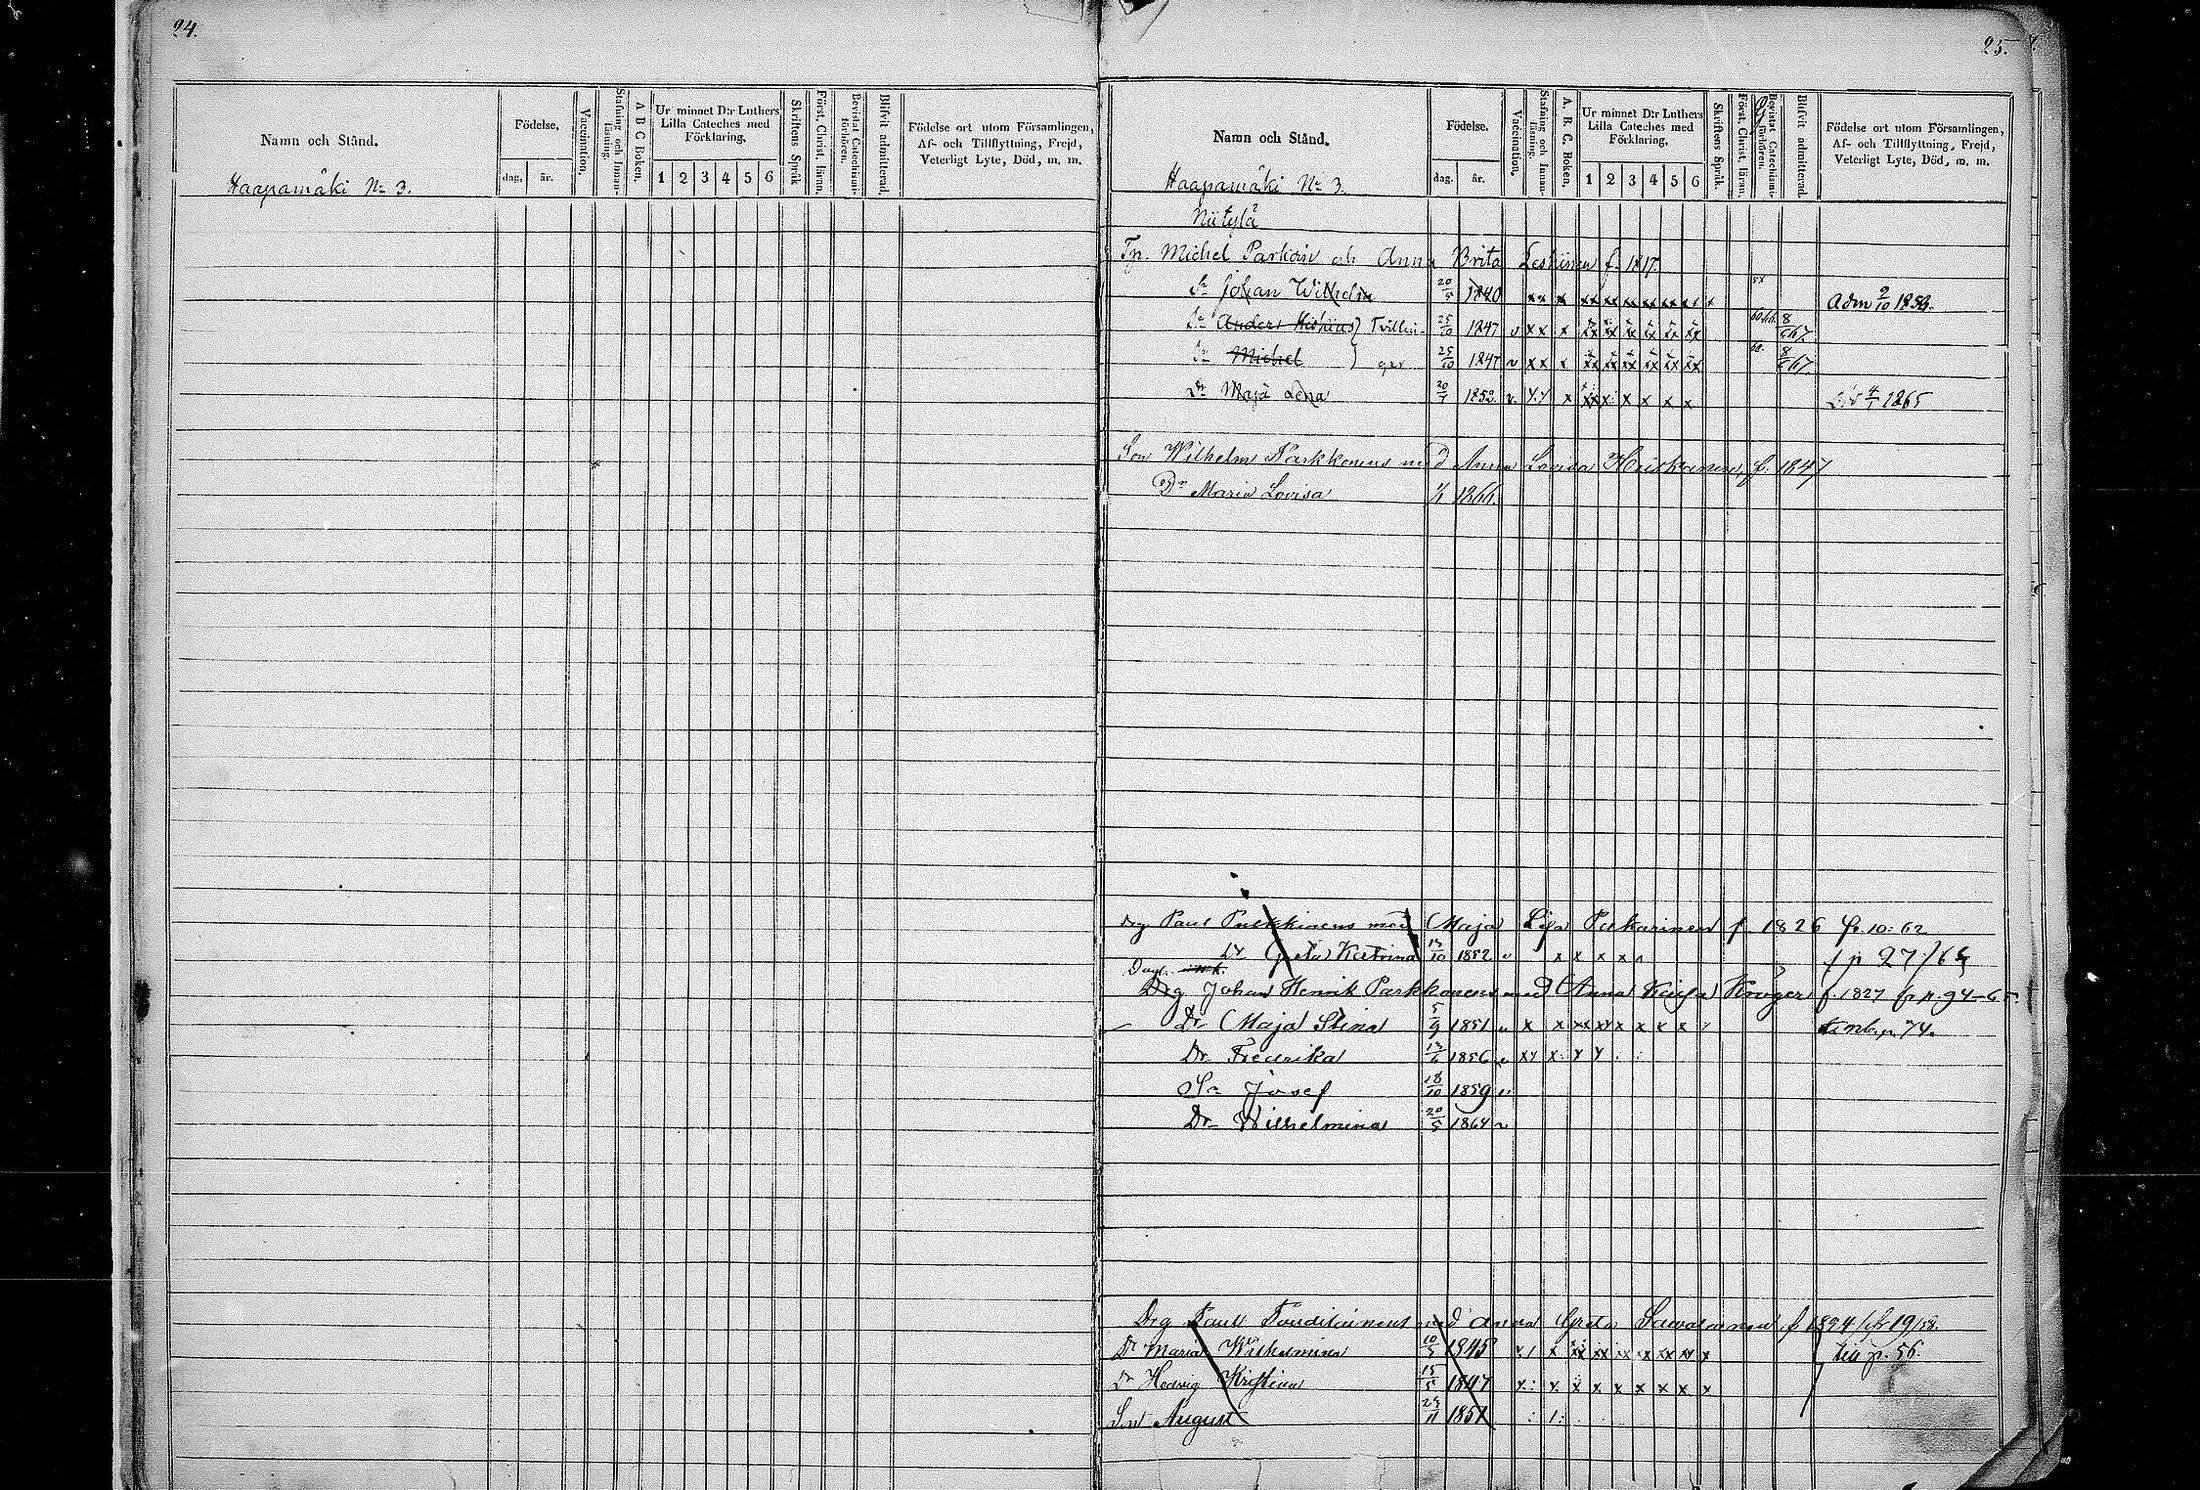 24.
Namn och Stånd.
Födelse.
dag, år.
Vaccination,
Stafning och Innan-
läsning.
A B C Boken,
Ur minnet D:r Luthers
Lilla Cateches med
Förklaring.
1 2 3 4 5 6
Skriftens Språk
Först. Christ. läran.
Bevistat Catechismi-
förhören.
Blifvit admitterad
Födelse ort utom Församlingen,
Af- och Tillflyttning, Frejd,
Veterligt Lyte, Död, m. m.
Haapamäki No 3.
25.
Namn och Stånd.
Födelse.
dag. år.
Vaccination,
Stafning och Innan-
läsning.
A. B. C. Boken,
Ur minnet D:r Luthers
Lilla Cateches med
Förklaring.
1 2 3 4 5 6
Skriftens Språk.
Först. Christ. läran.
Bevistat Catechismi-
förhören.
Blifvit admitterad
Födelse ort utom Församlingen,
Af- och Tillflyttning, Frejd,
Veterligt Lyte, Död, m. m.
Haapamäki No 3.
Michel och Anna Brita f. 1817.
Sn Johan Wilhelm 20/5 1840 x x x xx xx xx xx xx Adm 2/10 1858.
Sn Anders Tvillin- 25/10 1847 v x x x xx xx xx xx xx xx 8/ 67.
Sn Michel gar 25/10 1847 v x x x xx xx xx xx xx xx 8/ 67.
Dr Maja Lena 20/ 1852. v. x x x x x x x 1865
Son Wilhelm Parkkonens med Anna Lovisa Heiskanen, f. 1847
Dr Maria Lovisa 1/1 1866.
Drg Paul Pulkkinens med Maja Lisa Pakarinen f. 1826 fr. 10: 62
Dr Greta Katrina 13/10 1852 v x x x x f p 27/64
Drg Johan Henrik Parkkonens med Anna Kajsa Kröger f. 1827 fr p. 94-65
Dr Maja Stina 5/9 1851 v x x xx xx x x x x p. 74.
Dr Fredrika 13/6 1856 v xx x x x
Sn Josef 18/10 1859 v
Dr Wilhelmina 20/5 1864 v
Drg Paul med Anna Greta f 1824 fr 19/58.
Dr Maria Wilhelmina 10/5 1845 x xx xx xx xx xx xx x till p. 56.
Dr Hedvig Kristina 15/5 1847 x x x x x x x x x
Son August 24/11 1851